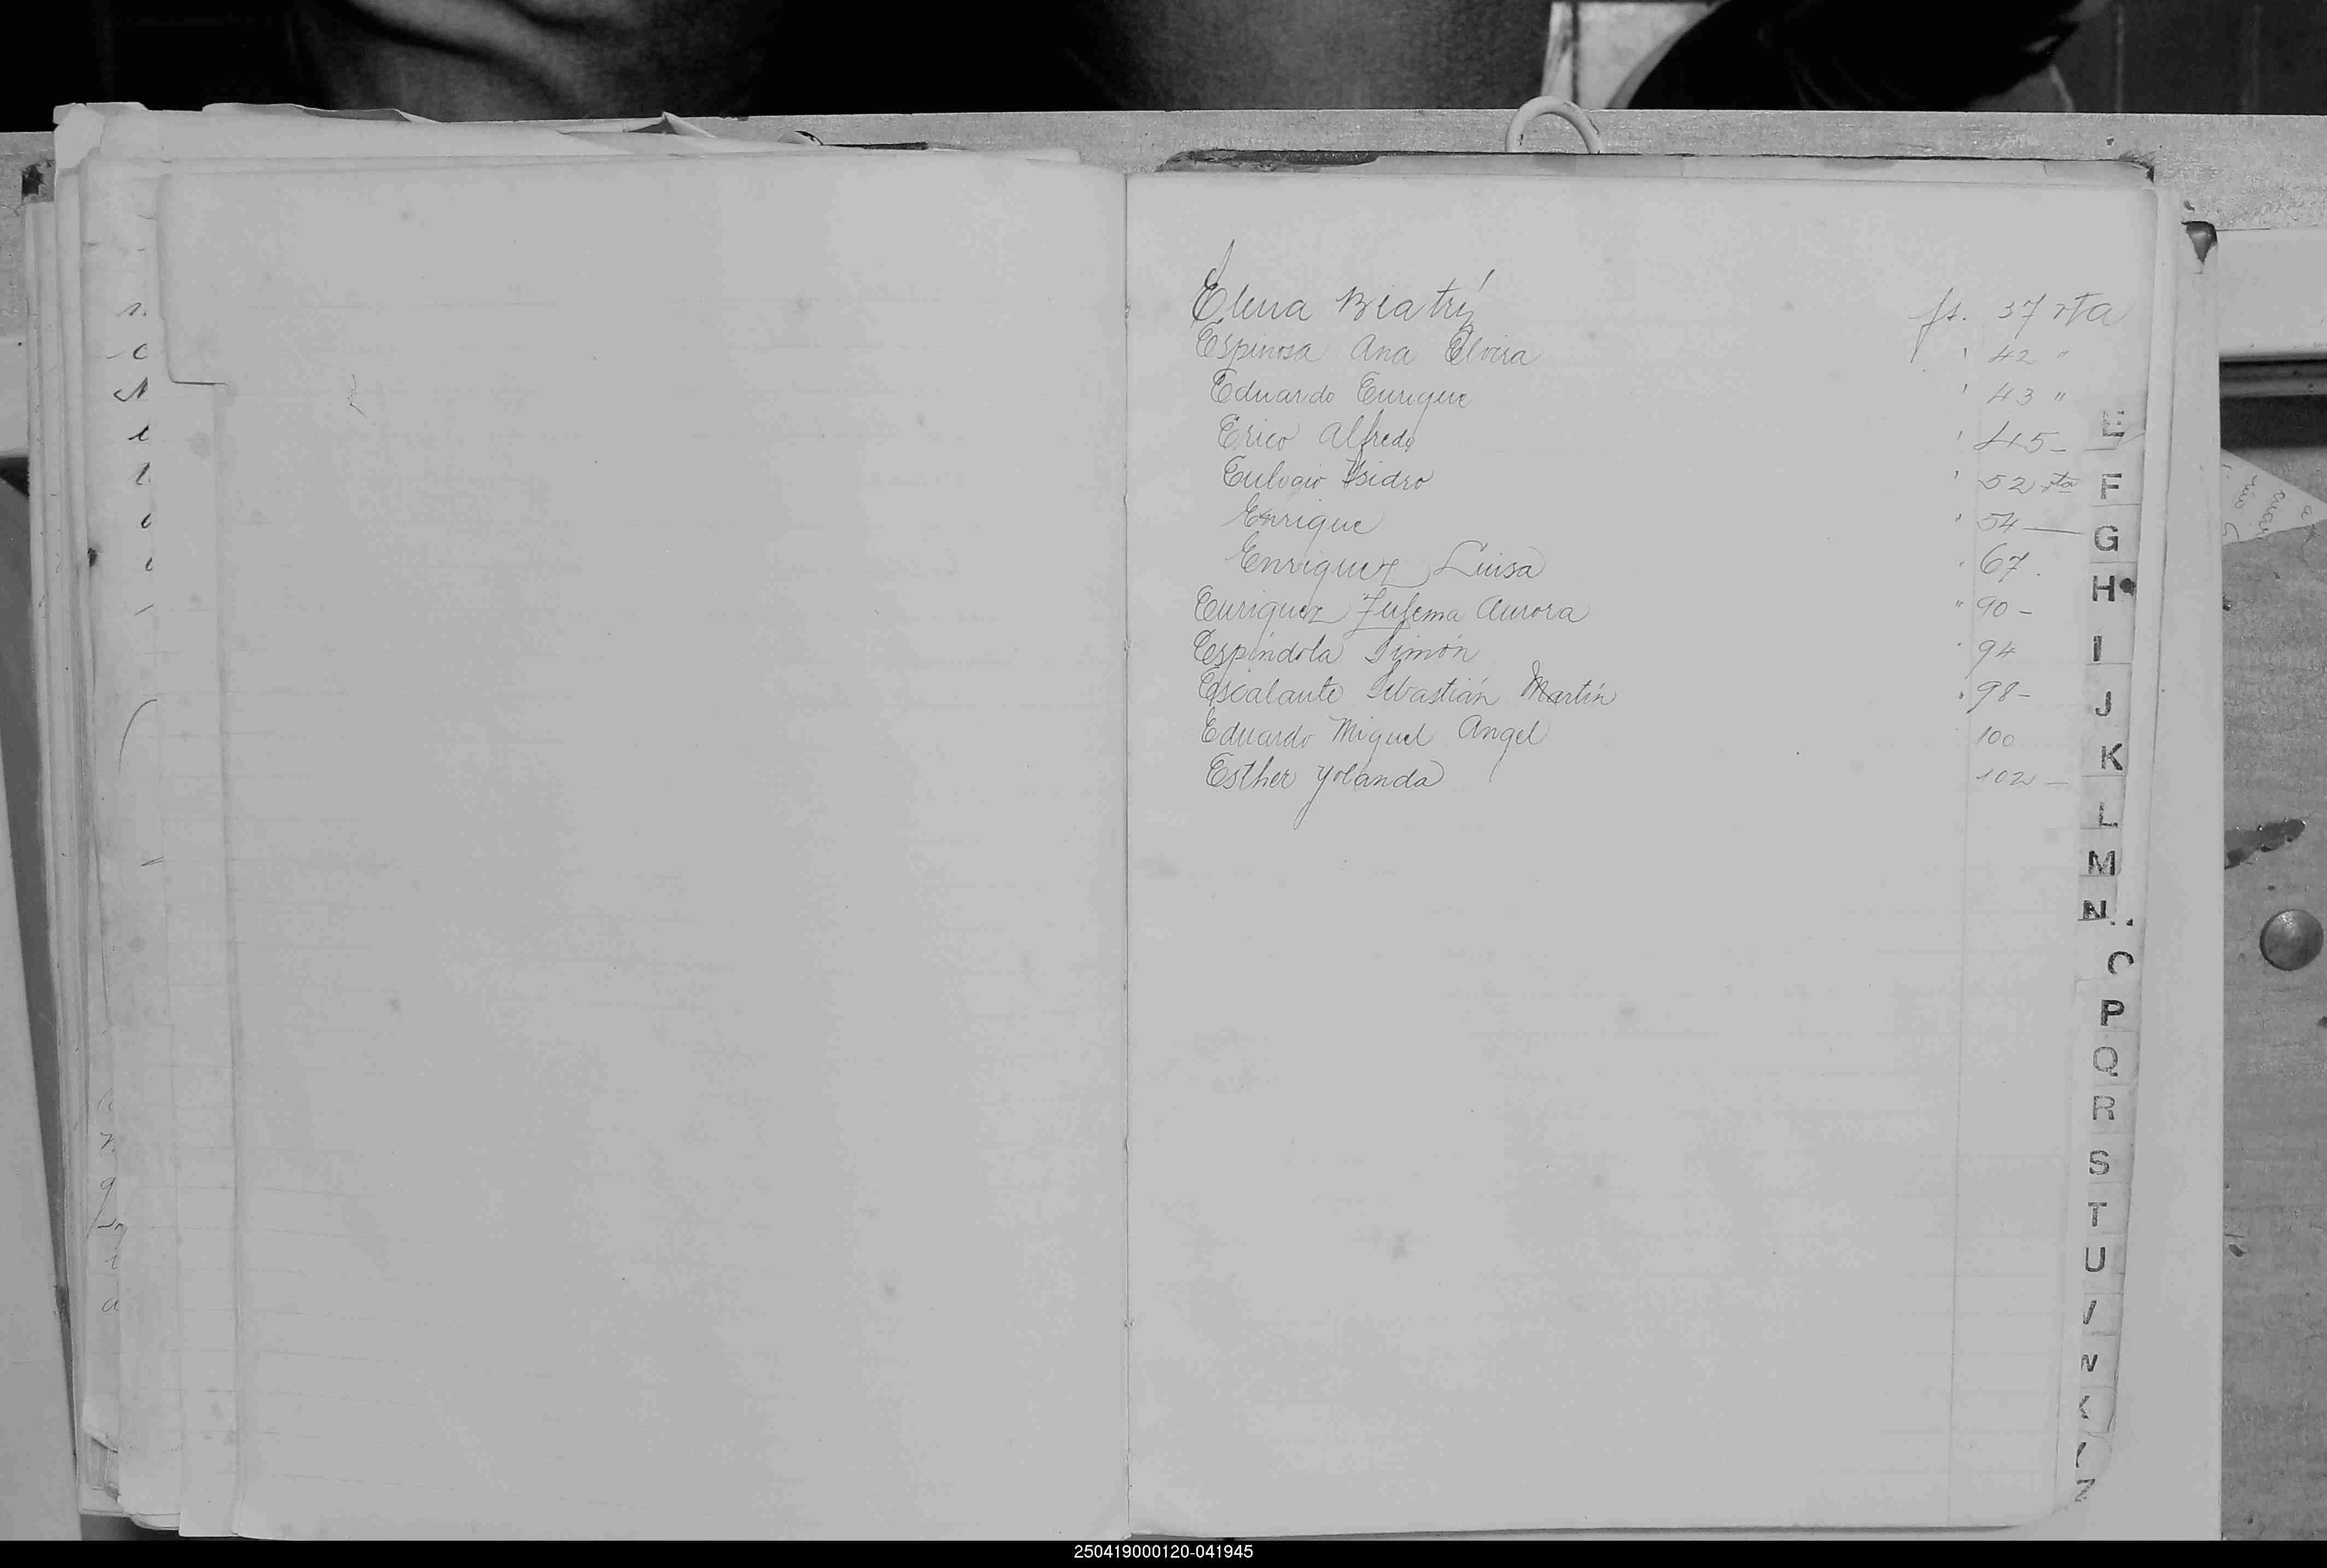 Elena Beatriz fs. 37 vta
Espinosa Ana Elvira " 42 "
Eduardo Enrique " 43 "
Erico Alfredo " 45 -
Eulogio Isidro " 52 vta
Enrique " 54 —
Enriquez Luisa " 67.
Enriquez Zulema Aurora " 90 -
Espíndola Simón " 94
Escalante Sebastián Martín " 98 -
Eduardo Miguel Angel 100
Esther Yolanda 102 -
E
F
G
H
I
J
K
L
M
N
P
Q
R
S
T
U
250419000120-041945